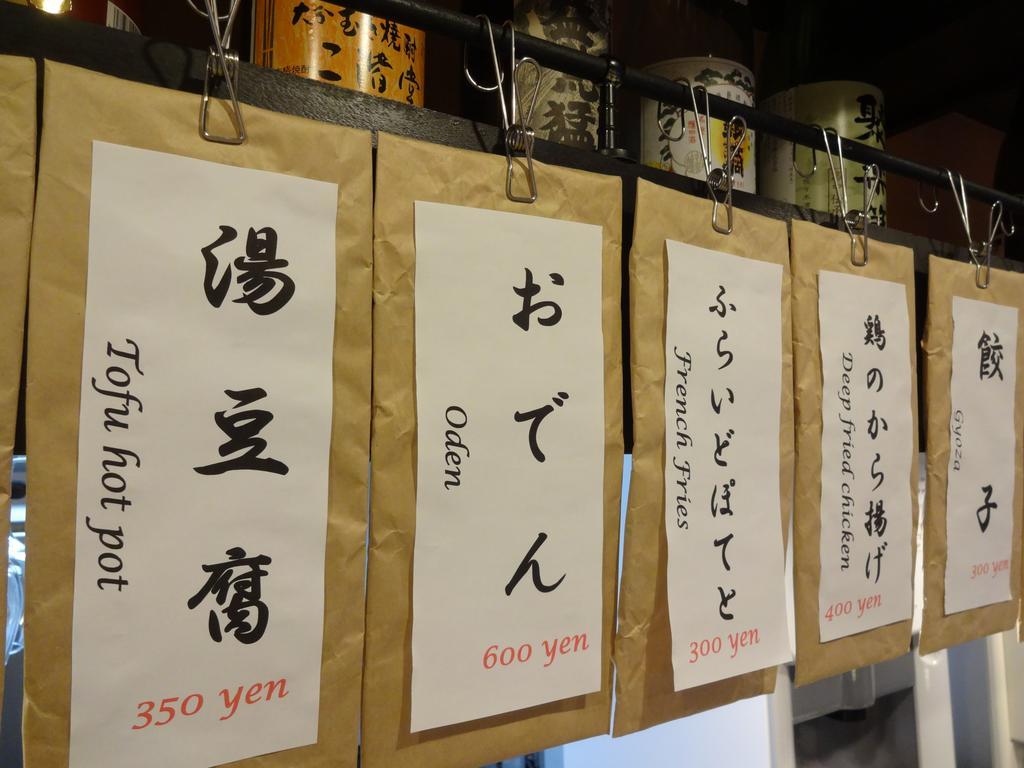 湯豆腐
Tofu hot pot
350 yen
おでん
Oden
600 yen
ふらいどぽてと
French Fries
300 yen
鶏のから揚げ
Deep fried chicken
400 yen
餃子
Gyoza
300 yen